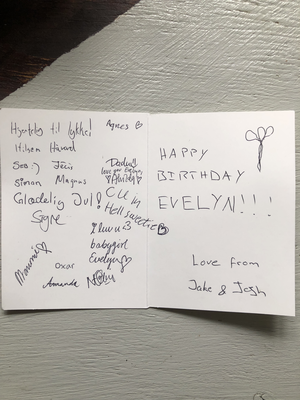 Hjertelig til lykke!
Agnes
Hilsen Håvard
Sea :)
Simon Magnus
Daddy!!
love you Evelyn
Glædelig Jul!
Signe
CU in
Hell sweetie
i luv u <3
babygirl
Evelyn
Oscar
Amanda
HAPPY
BIRTHDAY
EVELYN!!!
Love from
Jake & Josh